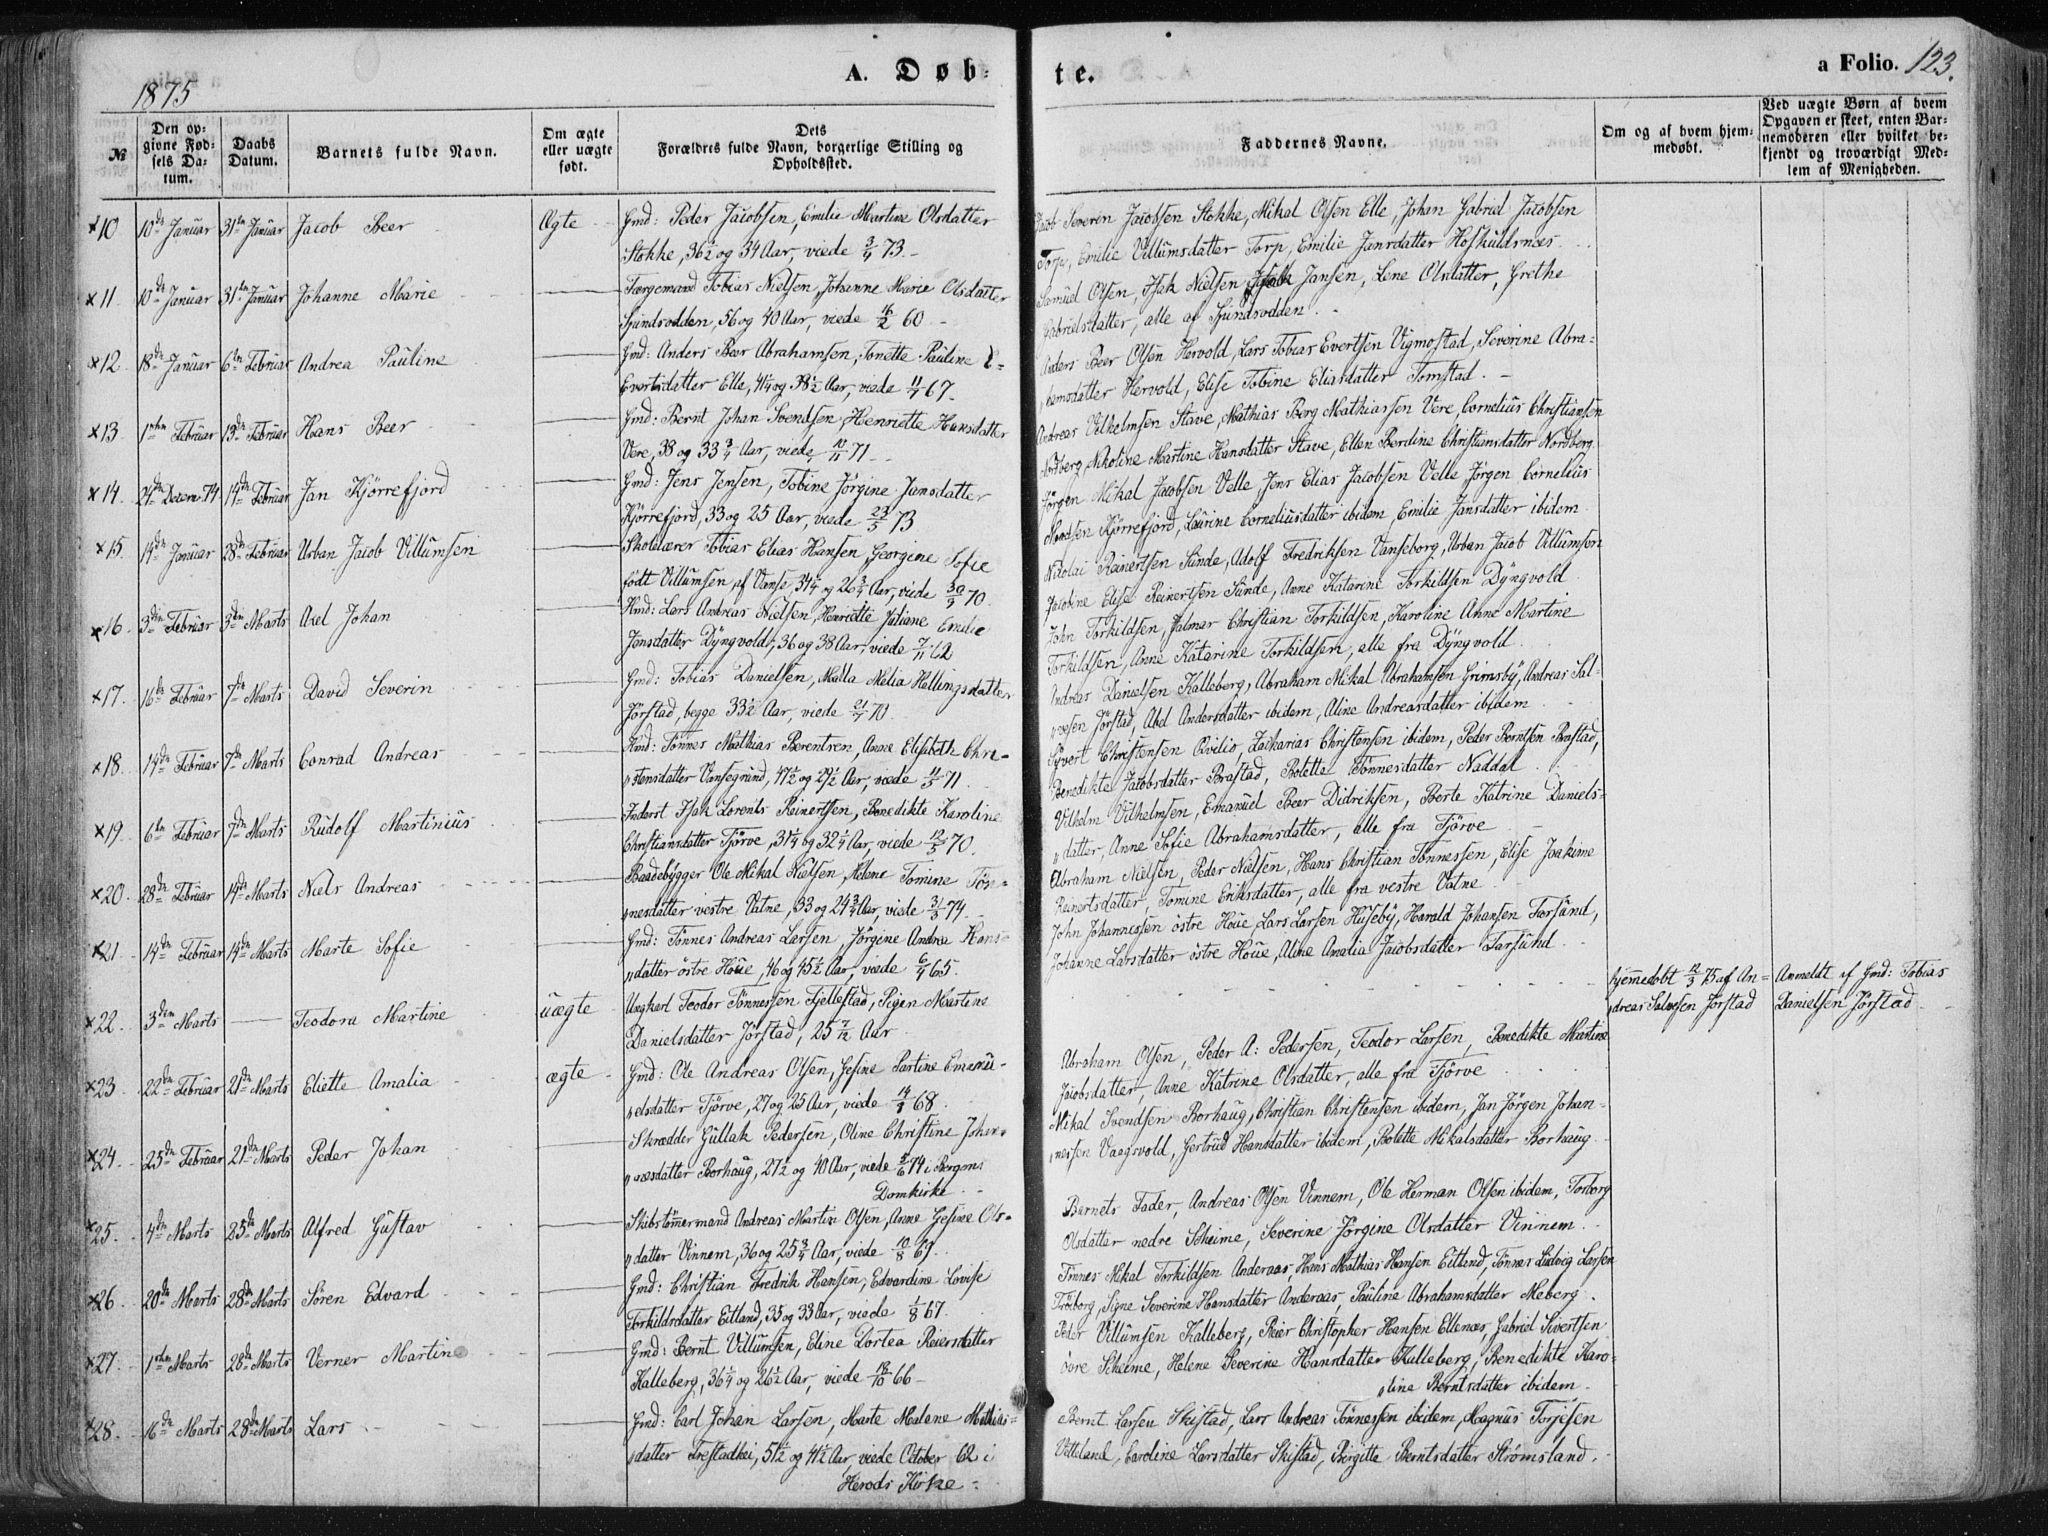 1875
A. Døb-
te.
a Folio. 123.
№
Den op-
givne Fød-
sels Da-
tum.
Daabs
Datum.
Barnets fulde Navn.
Om ægte
eller uægte
født.
Dets
Forældres fulde Navn, borgerlige Stilling og
Opholdssted.
Faddernes Navne.
Om og af hvem hjem-
medøbt.
Ved uægte Børn af hvem
Opgaven er skeet, enten Bar-
nemoderen eller hvilket be-
kjendt og troværdigt Med-
lem af Menigheden.
×10 10de Januar 31te Januar Jacob Beer Ægte Gmd: Peder Jacobsen, Emilie Martine Olsdatter
Stokke, 36½ og 34 Aar, viede 3/4 73.
Jacob Severin Jacobsen Stokke, Mikal Olsen Elle, Johan Gabriel Jacobsen
Torp, Emilie Villumsdatter Torp, Emilie Jansdatter Hoskuldsnæs.
×11. 10de Januar 31te Januar Johanne Marie Færgemand Tobias Nielsen, Johanne Marie Olsdatter
Spindsodden, 56 og 40 Aar, viede 16/2 60
Samuel Olsen, Isak Nielsen Jansen, Lene Olsdatter, Grethe
Gabrielsdatter, alle af Spindsodden.
×12. 18de Januar 6te Februar Andrea Pauline Gmd: Anders Beer Abrahamsen, Tonette Pauline E-
Evertsdatter Elle, 41¼ og 38½ Aar, viede 11/7 67.
Anders Beer Olsen Hervold, Lars Tobias Evertsen Vigmostad, Severine Abra-
hamsdatter Hervold, Elise Tobine Eliasdatter Tomstad.
×13. 1ste Februar 13de Februar Hans Beer Gmd: Bernt Johan Svendsen, Henriette Hansdatter
Vere, 38 og 33¾ Aar, viede 10/11 71
Andreas Vilhelmsen Stave, Mathias Berg Mathiassen Vere, Cornelius Christiansen
Nordberg, Nikoline Martine Hansdatter Stave, Ellen Berdine Christiansdatter Nordberg
×14. 24de Decem. 74 14de Februar Jan Kjörrefjord Gmd: Jens Jensen, Tobine Jörgine Jansdatter
Kjörrefjord, 33 og 25 Aar, viede 23/5 73
Jörgen Mikal Jacobsen Velle, Jens Elias Jacobsen Velle, Jörgen Cornelius
Kjörrefjord, Laurine Corneliusdatter ibidem, Emilie Jansdatter ibidem.
×15. 14de Januar 28de Februar Urban Jacob Villumsen Skolelærer Tobias Elias Hansen, Georgine Sofie
født Villumsen, af Vanse, 34¼ og 26¾ Aar, viede 30/9 70.
Nicolai Reinertsen Sunde, Adolf Fredriksen Vanseborg, Urban Jacob Villumsen
Jacobine Elise Reinertsen Sunde, Anne Katarine Torkildsen Dyngvold.
×16. 3die Februar 3die Marts Axel Johan Hmd: Lars Andreas Nielsen, Henriette Juliane Emilie
Jonsdatter Dyngvold, 36 og 38 Aar, viede 7/11 62
John Torkildsen, Jalmar Christian Torkildsen, Karoline Anne Martine
Torkildsen, Anne Katarine Torkildsen, alle fra Dyngvold.
×17. 16de Februar 7de Marts David Severin Gmd: Tobias Danielsen, Malla Malia Hellingsdatter
Jörstad, begge 33½ Aar, viede 21/7 70.
Andreas Danielsen Kalleberg, Abraham Mikal Abrahamsen Grimsby, Andreas Sal-
vesen Jörstad, Abel Andersdatter ibidem, Aline Andreasdatter ibidem
×18. 14de Februar 7de Marts Conrad Andreas Hmd: Tönnes Mathias Berentsen, Anne Elisabeth Chri-
stensdatter Vansegrund, 47½ og 29½ Aar, viede 11/5 71.
Syvert Christensen Qvilio, Zackarias Christensen ibidem, Peder Berntsen Brastad,
Benedikte Jacobsdatter Brastad, Bolette Tönnesdatter Naddal
×19. 6te Februar 7de Marts Rudolf Martinius Inderst Isak Lorents Reinertsen, Benedikte Karoline
Christiansdatter Tjörve, 31¼ og 32¼ Aar, viede 12/5 70.
Vilhelm Vilhelmsen, Emanuel Beer Didriksen, Berte Katrine Daniels-
datter, Anne Sofie Abrahamsdatter, alle fra Tjörve
×20. 28de Februar 14de Marts Niels Andreas Baadebygger Ole Mikal Nielsen, Helene Tomine Tön-
nesdatter vestre Vatne, 33 og 24¾ Aar, viede 31/3 74.
Abraham Nielsen, Peder Nielsen, Hans Christian Tönnessen, Elise Joakime
Reinertsdatter, Tomine Eriksdatter, alle fra vestre Vatne
×21. 14de Februar 14de Marts Marte Sofie Gmd: Tönnes Andreas Larsen, Jörgine Andrea Hans-
datter östre Houe, 46 og 45½ Aar, viede 6/4 65.
John Johannessen östre Houe, Lars Larsen Huseby, Harald Johansen Farsund,
Johanne Larsdatter östre Houe, Aline Amalia Jacobsdatter Farsund
×22. 3die Marts Teodora Martine uægte Ungkarl Teodor Tönnessen Fjellestad, Pigen Martine
Danielsdatter Jörstad, 25 7/12 Aar
hjemmedøbt 12/3 75 af An-
dreas Salvesen Jörstad
Anmeldt af Gmd: Tobias
Danielsen Jörstad
×23. 22de Februar 21de Marts Eliette Amalia ægte Gmd: Ole Andreas Olsen, Gesine Sartine Emanu-
elsdatter Tjörve, 27 og 25 Aar, viede 14/1 68.
Abraham Olsen, Peder A: Pedersen, Teodor Larsen, Benedikte Martine
Jacobsdatter, Anne Katrine Olsdatter, alle fra Tjörve
×24. 25de Februar 21de Marts Peder Johan Skrædder Gullak Pedersen, Oline Christine Johan-
nesdatter Borhaug, 27½ og 40 Aar, viede 5/6 74 i Bergens
Domkirke
Mikal Svendsen Borhaug, Christian Christensen ibidem, Jan Jörgen Johan-
nessen Vaagsvold, Gertrud Hansdatter ibidem, Bolette Mikalsdatter Borhaug
×25. 4de Marts 25de Marts Alfred Gustav Skibstømmermand Andreas Martin Olsen, Anne Gesine Ols-
datter Vinnem, 36 og 25¾ Aar, viede 10/8 69.
Barnets Fader, Andreas Olsen Vinnem, Ole Herman Olsen ibidem, Torborg
Olsdatter nedre Skeime, Severine Jörgine Olsdatter Vinnem.
×26. 20de Marts 28de Marts Sören Edvard Gmd: Christian Fredrik Hansen, Edvardine Lovise
Torkildsdatter Eitland, 35 og 33 Aar, viede 1/8 67.
Tönnes Mikal Torkildsen Anderaas, Hans Mathias Hansen Eitland, Tönnes Ludvig Larsen
Fröiborg, Signe Severine Hansdatter Anderaas, Pauline Abrahamsdatter Meberg.
×27. 1ste Marts 28de Marts Verner Martin Gmd: Bernt Villumsen, Eline Dortea Reiersdatter
Kalleberg, 36¼ og 26½ Aar, viede 18/10 66
Peder Villumsen Kalleberg, Reier Christopher Hansen Ellenæs, Gabriel Sivertsen
övre Skeime, Helene Severine Hansdatter Kalleberg, Benedikte Karo-
line Berntsdatter ibidem.
×28. 16de Marts 28de Marts Lars Gmd: Carl Johan Larsen, Marte Malene Mathias-
datter Frestadhei, 51½ og 41½ Aar, viede October 62 i
Herods Kirke
Bernt Larsen Skistad, Lars Andreas Tönnessen ibidem, Magnus Torjesen
Vatteland, Caroline Larsdatter Skistad, Birgitte Berntsdatter Strømsland.